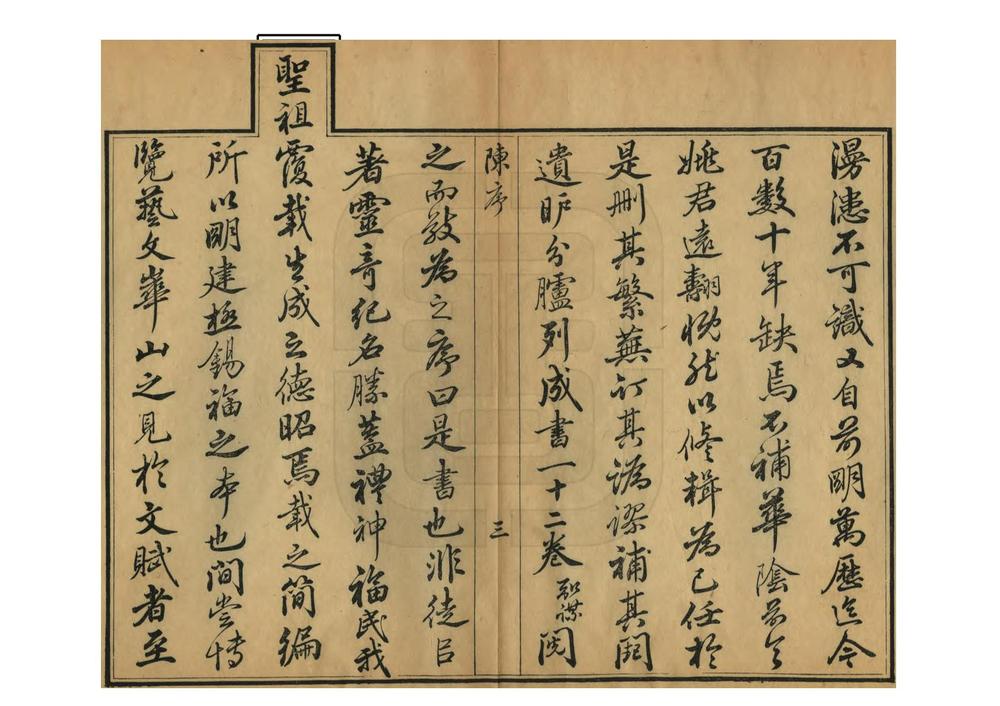 漫漶不可識又自前明萬歷迄今
百數十年缺焉不補華陰前令
姚君遠翿慨然以修輯為己任於
是刪其繁蕪訂其譌謬補其闕
遺眆分臚列成書一十二卷 煕謀 閱
陳序 三
之而敘為之序曰是書也非徒㠯
著靈奇紀名勝蓋禮神福民我
聖祖覆載生成之德昭焉載之簡編
所以明建極錫福之本也間嘗博
覽藝文華山之見於文賦者至